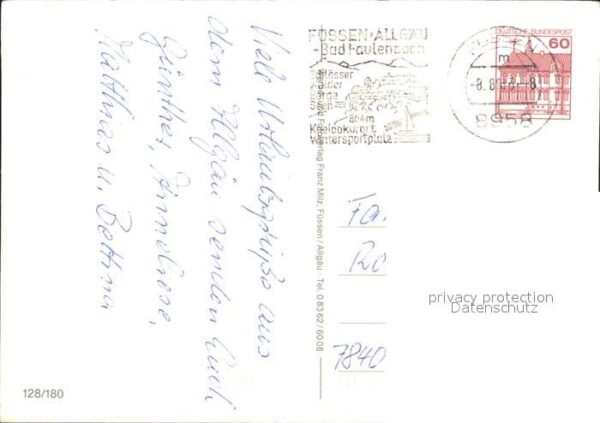 Viele Urlaubsgrüße aus
dem Allgäu senden Euch
Günther, Anneliese,
Matthias u. Bettina
FÜSSEN/ALLGÄU
-Bad Faulenbach
Schlösser
Wälder
Berge
Seen
804m
Kneippkurort
Wintersportplatz
8958
DEUTSCHE BUNDESPOST
60
Franz Milz, Füssen/Allgäu · Tel. 08362/6008
Fa
Ro
7840
privacy protection
Datenschutz
128/180